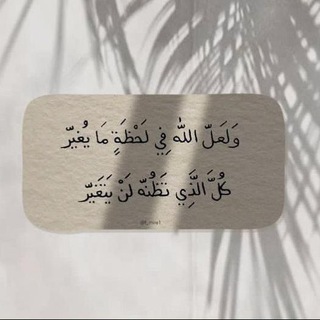 وَلَعَلّ اللّه فِي لَحْظَةٍ مَا يُغيّر
كُلّ الَّذِي تَظُنّه لَنْ يَتَغَيّر